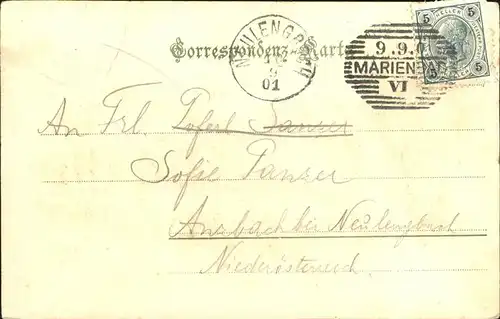 Correspondenz-Karte
NEULENGBACH
9
01
9.9.0
MARIENBAD
VI
5 HELLER 5
5 5
An Frl.
Sofie Panzer
Ansbach bei Neulengbach
Niederösterreich